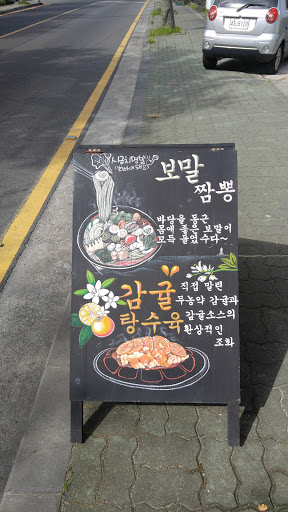 보말
짬뽕
바당을 품은
몸에 좋은 보말이
모득 들었수다~
감귤
탕수육
직접 말린
무농약 감귤과
감귤소스의
환상적인
조화